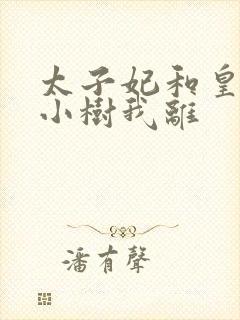 太子妃和皇
小樹我離
潘有聲